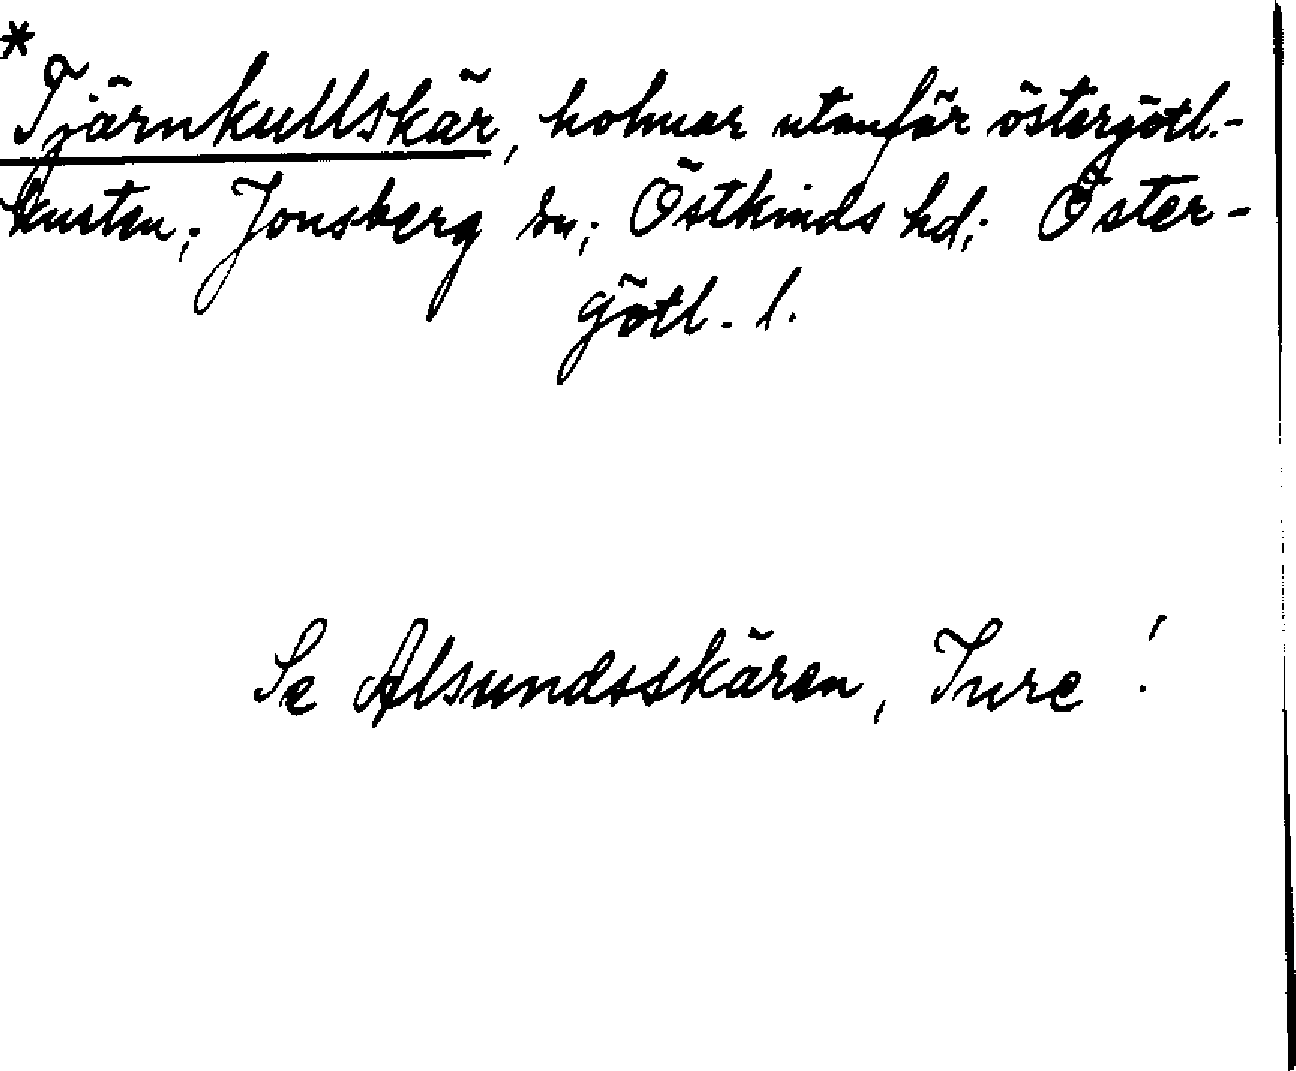 *
Tjärnkullskär, holmar utanför östergötl.-
kusten; Jonsberg sn; Östkinds hd; Öster-
götl. l.
Se Alsundsskären, Ture!